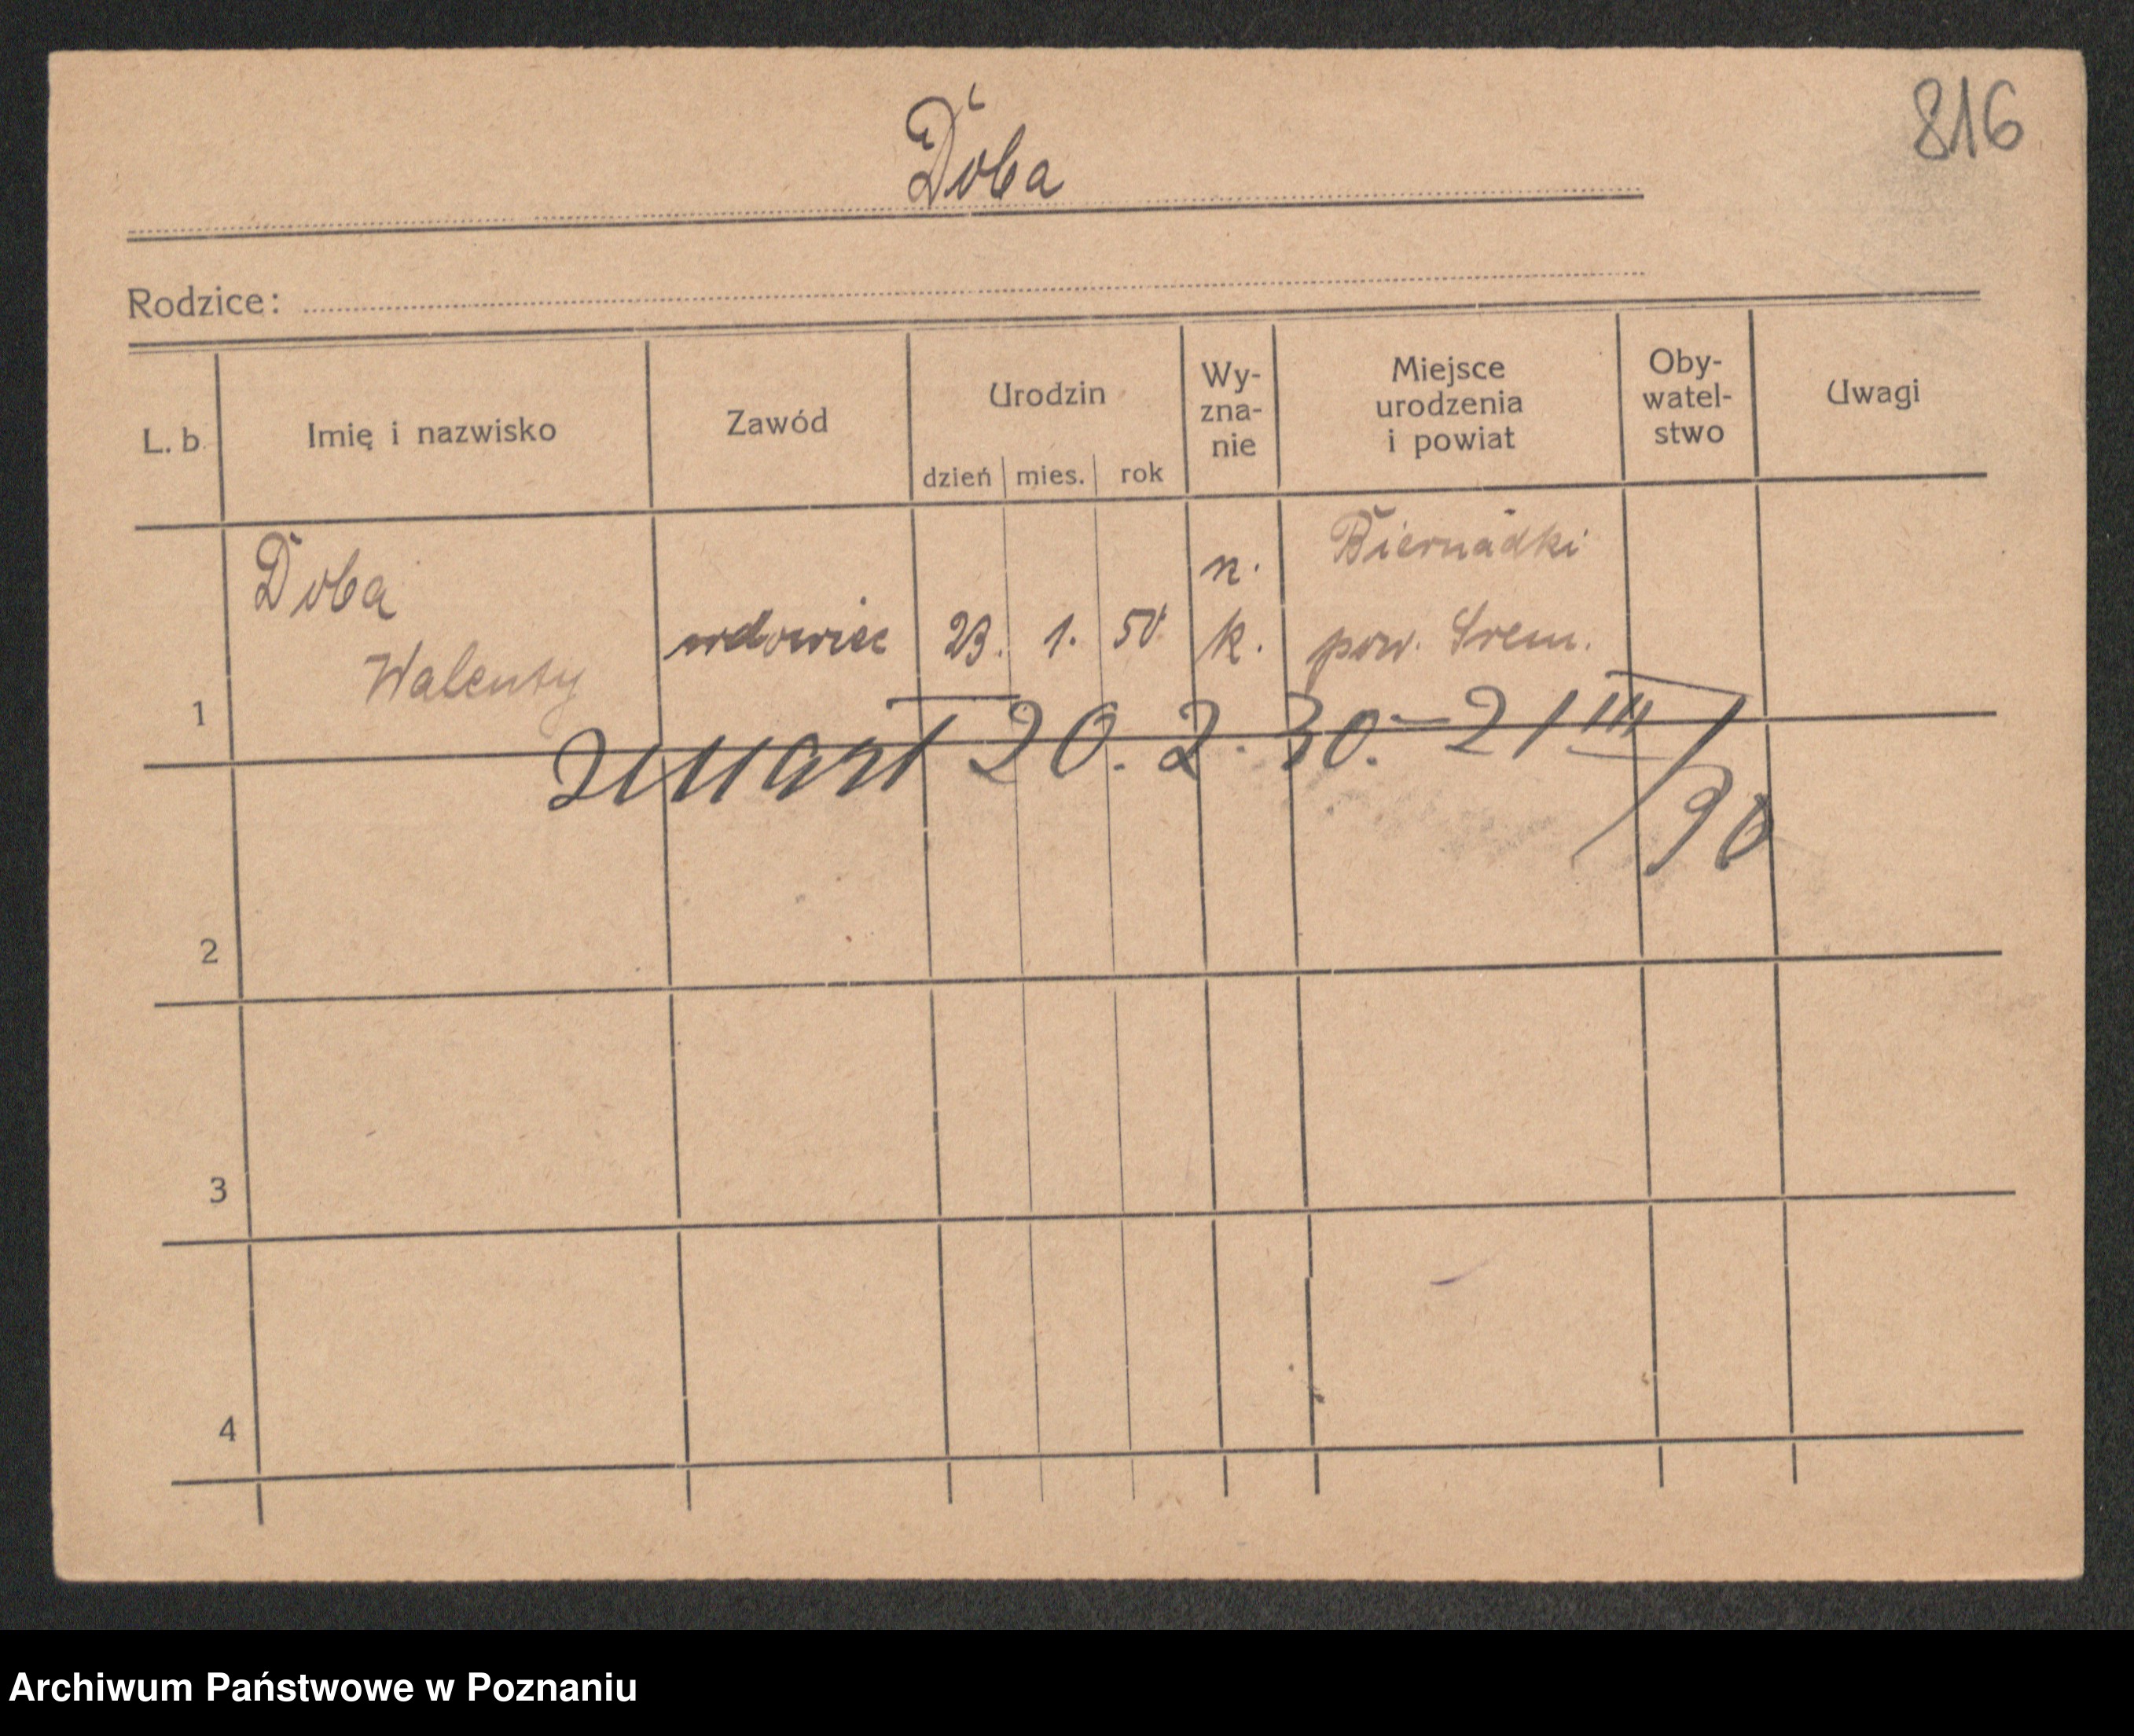 816
Doba
Rodzice:
L. b.
Imię i nazwisko
Zawód
Urodzin
dzień mies. rok
Wy-
zna-
nie
Miejsce
urodzenia
i powiat
Oby-
watel-
stwo
Uwagi
1
Doba
Walenty
wdowiec
23. 1. 50
n.
k.
Biernadki
pow. Śrem.
zmarł 20. 2. 30. – 21 III / 30
2
3
4
Archiwum Państwowe w Poznaniu